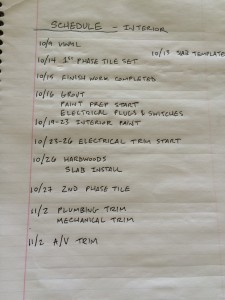 SCHEDULE - INTERIOR
10/9 VSWML
10/13 SLAB TEMPLATE
10/14 1ST PHASE TILE SET
10/15 FINISH WORK COMPLETED
10/16 GROUT
PAINT PREP START
ELECTRICAL PLUGS & SWITCHES
10/19-23 INTERIOR PAINT
10/23-26 ELECTRICAL TRIM START
10/26 HARDWOODS
SLAB INSTALL
10/27 2ND PHASE TILE
11/2 PLUMBING TRIM
MECHANICAL TRIM
11/2 A/V TRIM